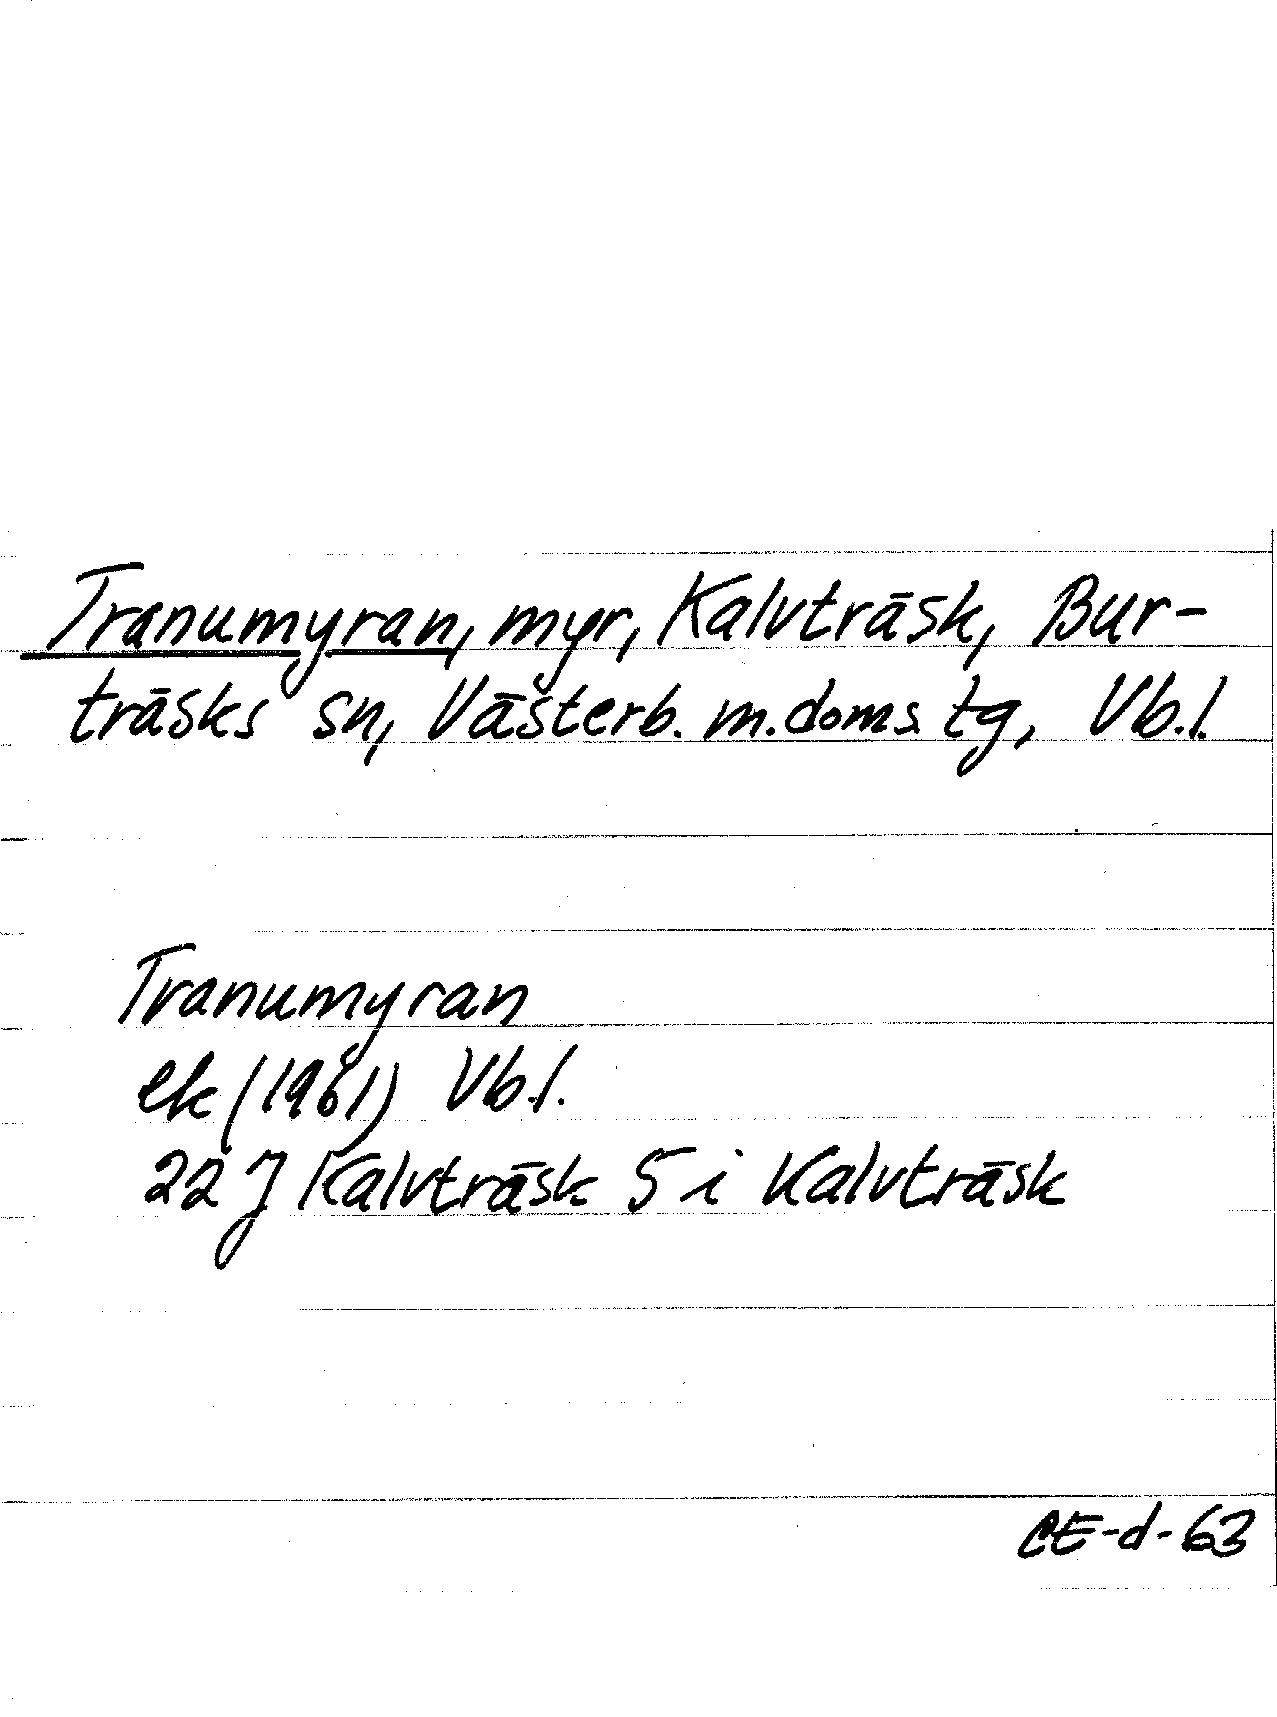 Tranumyran, myr, Kalvträsk, Bur-
träsks sn, Västerb. m. doms. tg, Vb.l.
Tranumyran
ek (1961) Vb.l.
22 J Kalvträsk 5 i Kalvträsk
CE-d-63